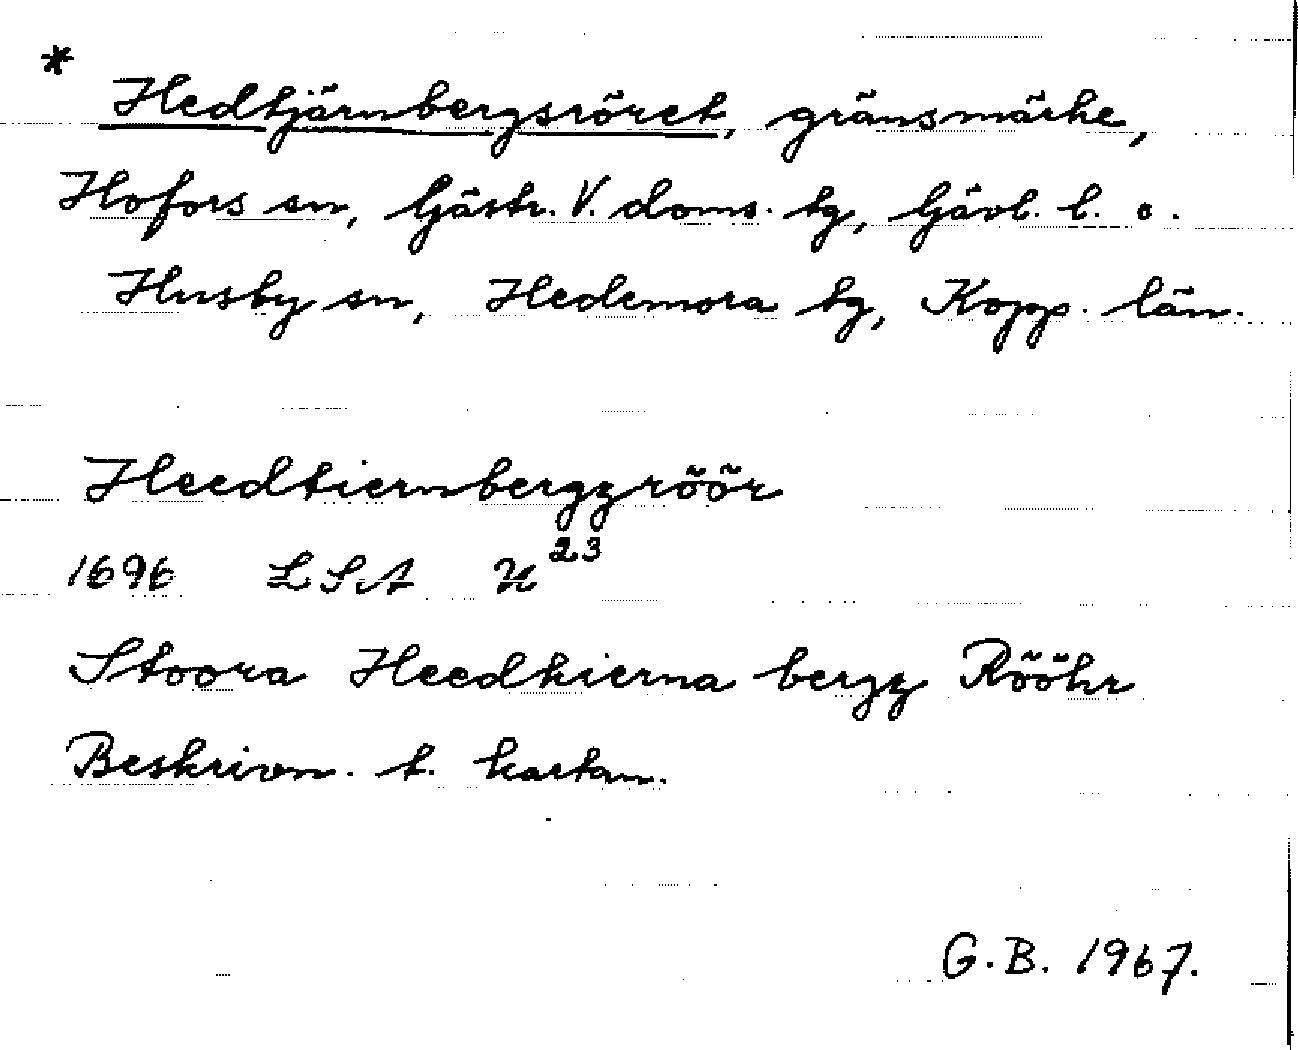 *
Hedtjärnbergsröret, gränsmärke,
Hofors sn, Gästr. V. doms. tg, Gävl. l. o.
Husby sn, Hedemora tg, Kopp. län.
Heedtiernbergzröör
1696 LSA U 23
Stoora Heedkierna bergz Rööhr
Beskrivn. t. kartan.
G.B. 1967.